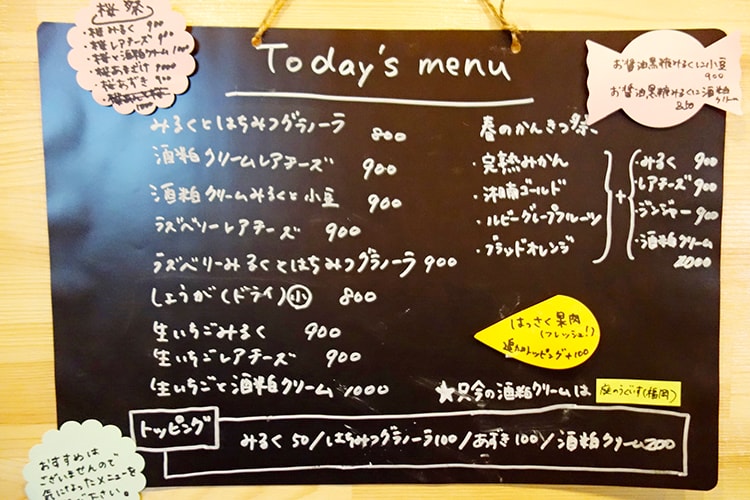 桜祭
・桜みるく 900
・桜レアチーズ 900
・桜と酒粕クリーム 1000
・桜あまざけ 1000
・桜あずき 900
1000
Today's menu
お醤油黒糖みるくに小豆
900
お醤油黒糖みるくに酒粕
クリーム
850
みるくとはちみつグラノーラ 800
酒粕クリームレアチーズ 900
酒粕クリームみるくと小豆 900
ラズベリーレアチーズ 900
ラズベリーみるくとはちみつグラノーラ 900
しょうが(ドライ)小 800
生いちごみるく 900
生いちごレアチーズ 900
生いちごと酒粕クリーム 1000
春のかんきつ祭、
・完熟みかん
・湘南ゴールド
・ルビーグレープフルーツ
・ブラッドオレンジ
+
・みるく 900
・レアチーズ 900
・ジンジャー 900
・酒粕クリーム
1000
はっさく果肉
(フレッシュ!)
トッピング+100
★只今の酒粕クリームは 庭のうぐいす(福岡)
トッピング
みるく 50/はちみつグラノーラ100/あずき100/酒粕クリーム200
おすすめは
ございませんので
気になったメニューを
ください。